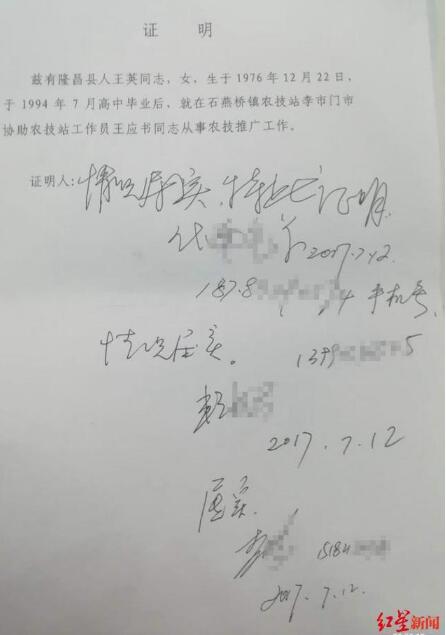 证 明
兹有隆昌县人王英同志，女，生于 1976 年 12 月 22 日，
于 1994 年 7 月高中毕业后，就在石燕桥镇农技站李市门市
协助农技站工作员王应书同志从事农技推广工作。
证明人：情况属实，特此证明
代
2017.7.12
187.8 4 手机号、
情况属实。 139 5
2017.7.12
属实.
李 1518
2017.7.12.
红星新闻